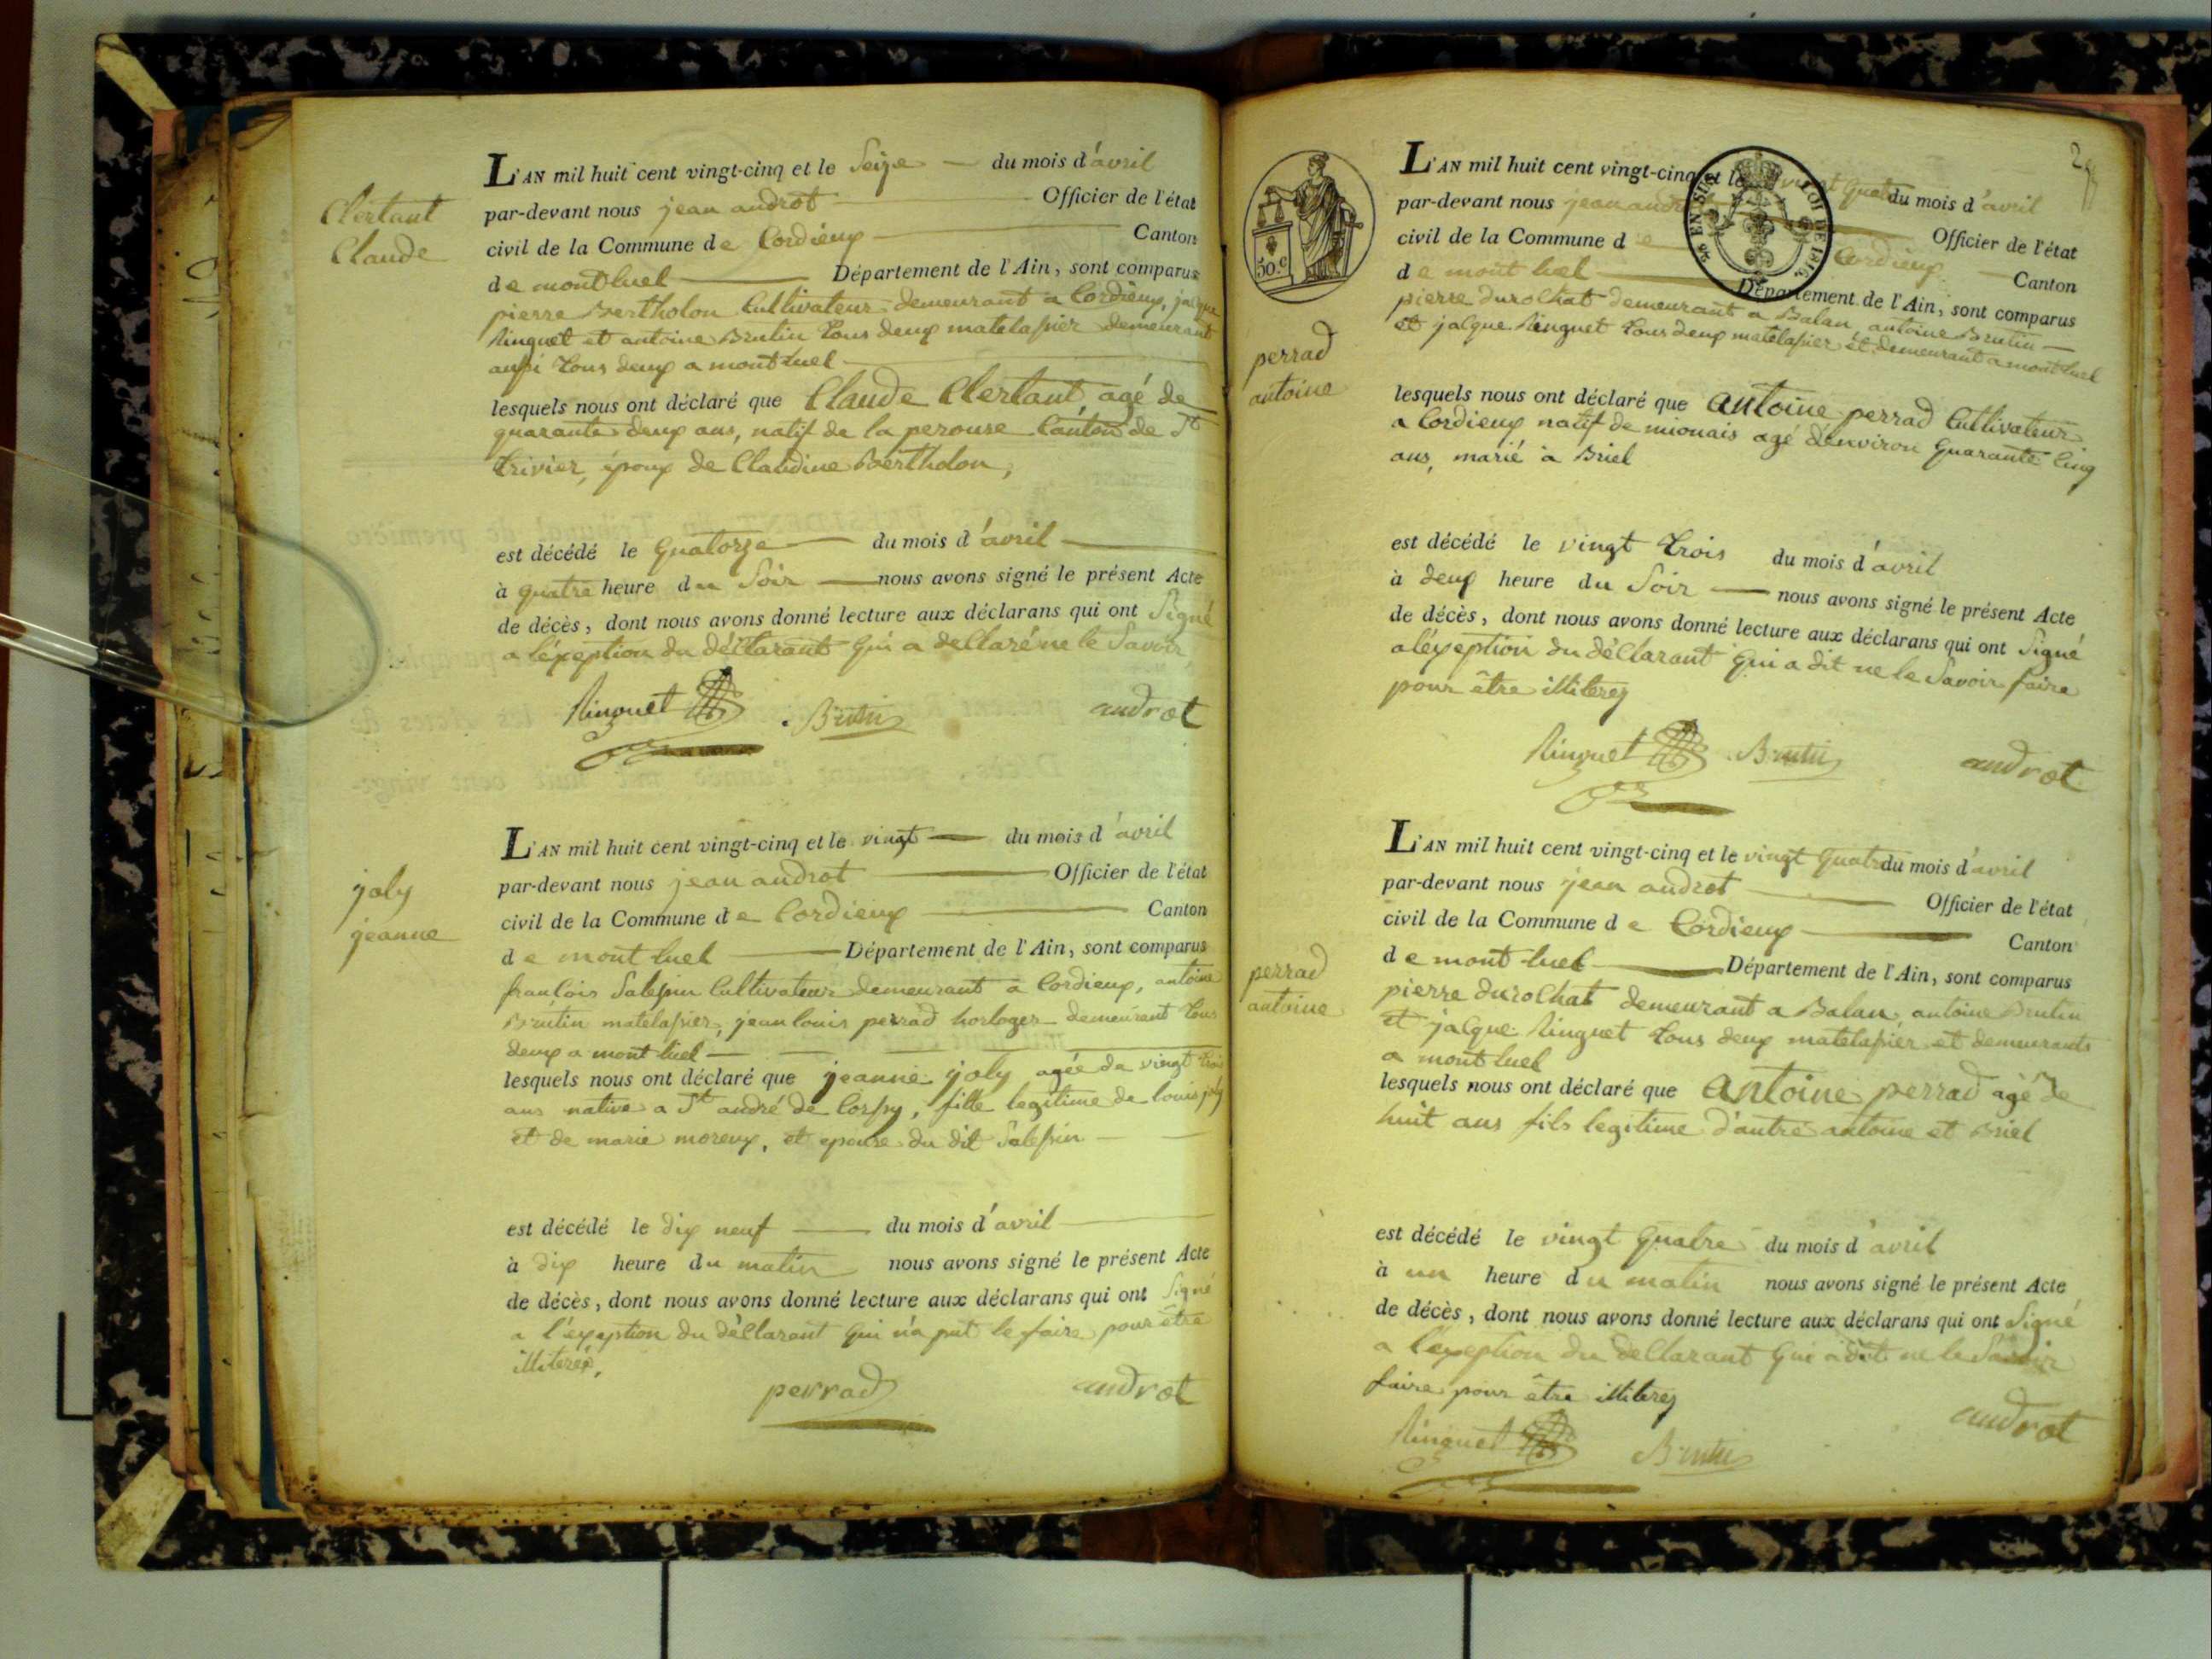 Clertant
Claude
L'AN mil huit cent vingt-cinq et le Seize du mois d'avril
par-devant nous jean androt Officier de l'état
civil de la Commune de Cordieux Canton
de montluel Département de l'Ain, sont comparus
pierre Bertholon Cultivateur demeurant a Cordieux, jacque
Ringuet et antoine Brutin tous deux matelassier demeurant
aussi tous deux a montluel
lesquels nous ont déclaré que Claude Clertant agé de
quarante deux ans, natif de la perouse Canton de St
trivier, époux de Claudine Bertholon,
est décédé le quatorze du mois d'avril
à quatre heure du Soir nous avons signé le présent Acte
de décès, dont nous avons donné lecture aux déclarans qui ont Signé
a l'éxeption du déclarant qui a declaré ne le Savoir
Ringuet Brutin androt
joly
jeanne
L'AN mil huit cent vingt-cinq et le vingt du mois d'avril
par-devant nous jean androt Officier de l'état
civil de la Commune de Cordieux Canton
de mont luel Département de l'Ain, sont comparus
françois Salessin Cultivateur demeurant a Cordieux, antoine
Brutin matelassier, jean louis perrad horloger demeurant tous
deux a mont luel
lesquels nous ont déclaré que jeanne joly agée de vingt trois
ans native a St andré de Corsy, fille legitime de louis joly
et de marie moreux, et epouse du dit Salessin
est décédé le dix neuf du mois d'avril
à dix heure du matin nous avons signé le présent Acte
de décès, dont nous avons donné lecture aux déclarans qui ont Signé
a l'éxeption du déclarant qui n'a put le faire pour être
illiterez,
perrad androt
50.c
EN SUS LOI DE 1816
L'AN mil huit cent vingt-cinq et le vingt quatre du mois d'avril
par-devant nous jean androt Officier de l'état
civil de la Commune de Cordieux Canton
de mont luel Département de l'Ain, sont comparus
pierre durochat demeurant a Balan, antoine Brutin
et jacque Ringuet tous deux matelassier et demeurant a mont luel
perrad
antoine
lesquels nous ont déclaré que antoine perrad Cultivateur
a Cordieux natif de mionais agé d'environ quarante cinq
ans, marié à Briel
est décédé le vingt trois du mois d'avril
à deux heure du Soir nous avons signé le présent Acte
de décès, dont nous avons donné lecture aux déclarans qui ont Signé
a léxeption du déclarant qui a dit ne le Savoir faire
pour être illiterez
Ringuet Brutin androt
L'AN mil huit cent vingt-cinq et le vingt quatre du mois d'avril
par-devant nous jean androt Officier de l'état
civil de la Commune de Cordieux Canton
de mont luel Département de l'Ain, sont comparus
perrad
antoine
pierre durochat demeurant a Balan, antoine Brutin
et jacque Ringuet tous deux matelassier et demeurants
a mont luel
lesquels nous ont déclaré que antoine perrad agé de
huit ans fils legitime d'autre antoine et Briel
est décédé le vingt quatre du mois d'avril
à un heure du matin nous avons signé le présent Acte
de décès, dont nous avons donné lecture aux déclarans qui ont Signé
a l'exeption du declarant qui a dit ne le Savoir
faire pour être illiterez
Ringuet Brutin androt